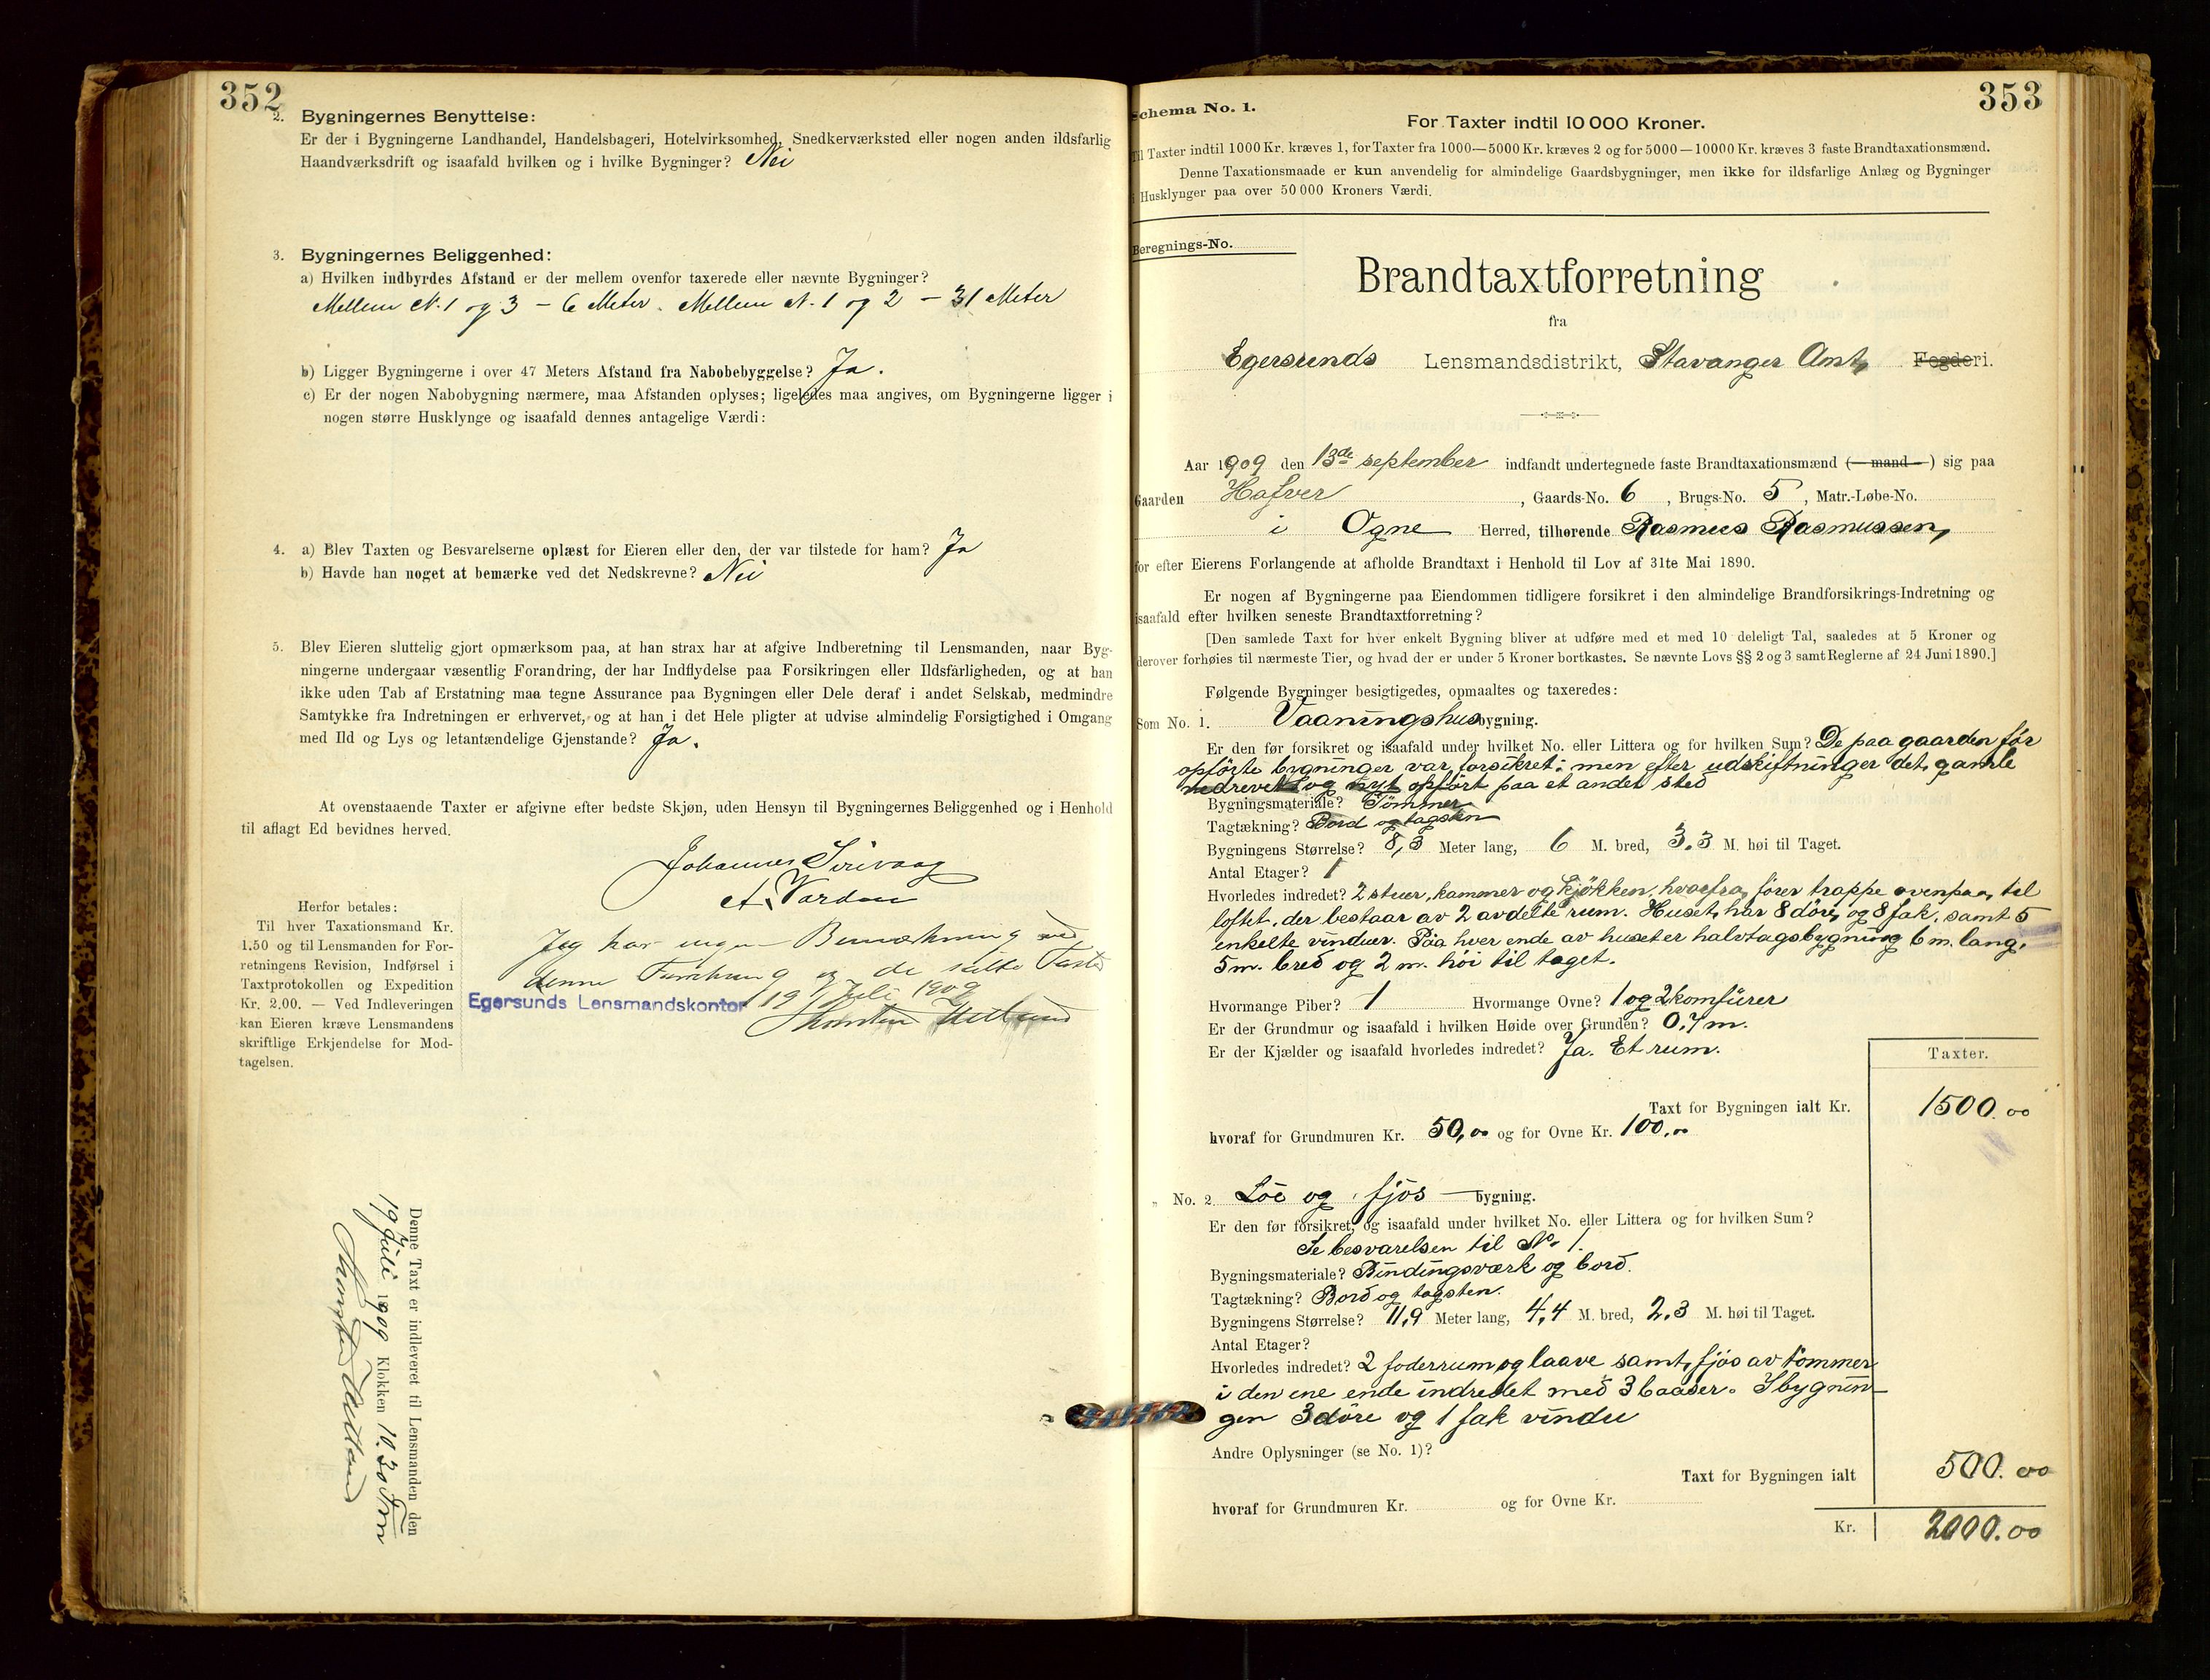 352
2. Bygningernes Benyttelse:
Er der i Bygningerne Landhandel, Handelsbageri, Hotelvirksomhed, Snedkerværksted eller nogen anden ildsfarlig
Haandværksdrift og isaafald hvilken og i hvilke Bygninger? Nei
3. Bygningernes Beliggenhed:
a) Hvilken indbyrdes Afstand er der mellem ovenfor taxerede eller nævnte Bygninger?
Mellem N. 1 og 3 – 6 Meter. Mellem N. 1 og 2 – 31 Meter
b) Ligger Bygningerne i over 47 Meters Afstand fra Nabobebyggelse? Ja.
c) Er der nogen Nabobygning nærmere, maa Afstanden oplyses; ligeledes maa angives, om Bygningerne ligger i
nogen større Husklynge og isaafald dennes antagelige Værdi:
4. a) Blev Taxten og Besvarelserne oplæst for Eieren eller den, der var tilstede for ham? Ja
b) Havde han noget at bemærke ved det Nedskrevne? Nei
5. Blev Eieren sluttelig gjort opmærksom paa, at han strax har at afgive Indberetning til Lensmanden, naar Byg-
ningerne undergaar væsentlig Forandring, der har Indflydelse paa Forsikringen eller Ildsfarligheden, og at han
ikke uden Tab af Erstatning maa tegne Assurance paa Bygningen eller Dele deraf i andet Selskab, medmindre
Samtykke fra Indretningen er erhvervet, og at han i det Hele pligter at udvise almindelig Forsigtighed i Omgang
med Ild og Lys og letantændelige Gjenstande? Ja.
At ovenstaaende Taxter er afgivne efter bedste Skjøn, uden Hensyn til Bygningernes Beliggenhed og i Henhold
til aflagt Ed bevidnes herved.
Johannes Sirivaag
A. Varden
Herfor betales:
Til hver Taxationsmand Kr.
1.50 og til Lensmanden for For-
retningens Revision, Indførsel i
Taxtprotokollen og Expedition
Kr. 2.00. — Ved Indleveringen
kan Eieren kræve Lensmandens
skriftlige Erkjendelse for Mod-
tagelsen.
Jeg har ingen Bemærkning ved
denne Forretning og de satte Taxter
Egersunds Lensmandskontor 19 Juli 1909
Denne Taxt er indleveret til Lensmanden den
19 Juli 1909 Klokken 10.30 Fm
353
Schema No. 1.
For Taxter indtil 10 000 Kroner.
Til Taxter indtil 1000 Kr. kræves 1, for Taxter fra 1000—5000 Kr. kræves 2 og for 5000—10000 Kr. kræves 3 faste Brandtaxationsmænd.
Denne Taxationsmaade er kun anvendelig for almindelige Gaardsbygninger, men ikke for ildsfarlige Anlæg og Bygninger
i Husklynger paa over 50 000 Kroners Værdi.
Beregnings-No.
Brandtaxtforretning
fra
Egersunds Lensmandsdistrikt, Stavanger Amt, Fogderi.
Aar 1909 den 13de september indfandt undertegnede faste Brandtaxationsmænd (— mand —) sig paa
Gaarden Hafver, Gaards-No. 6, Brugs-No. 5, Matr.-Løbe-No.
i Ogne Herred, tilhørende Rasmus Rasmussen,
for efter Eierens Forlangende at afholde Brandtaxt i Henhold til Lov af 31te Mai 1890.
Er nogen af Bygningerne paa Eiendommen tidligere forsikret i den almindelige Brandforsikrings-Indretning og
isaafald efter hvilken seneste Brandtaxtforretning?
[Den samlede Taxt for hver enkelt Bygning bliver at udføre med et med 10 deleligt Tal, saaledes at 5 Kroner og
derover forhøies til nærmeste Tier, og hvad der er under 5 Kroner bortkastes. Se nævnte Lovs §§ 2 og 3 samt Reglerne af 24 Juni 1890.]
Følgende Bygninger besigtigedes, opmaaltes og taxeredes:
Som No. 1. Vaaningshusbygning.
Er den før forsikret og isaafald under hvilket No. eller Littera og for hvilken Sum? De paa gaarden før
opførte bygninger var forsikret; men efter udskiftninger det gamle
nedrevet og nyt opført paa et andet sted
Bygningsmateriale? Tømmer
Tagtækning? Bord og tagsten
Bygningens Størrelse? 8,3 Meter lang, 6 M. bred, 3.3 M. høi til Taget.
Antal Etager? 1
Hvorledes indredet? 2 stuer, kammer og kjøkken, hvorfra fører trappe ovenpaa, til
loftet, der bestaar av 2 avdelte rum. Huset har 8 døre og 8 fak, samt 5
enkelte vinduer. Paa hver ende av huset er halvtagsbygning 6 m. lang,
5 m. bred og 2 m. høi til taget.
Hvormange Piber? 1 Hvormange Ovne? 1 og 2 komfürer
Er der Grundmur og isaafald i hvilken Høide over Grunden? 0,7 m.
Er der Kjælder og isaafald hvorledes indredet? Ja. Et rum.
Taxter.
Taxt for Bygningen ialt Kr. 1500.00
hvoraf for Grundmuren Kr. 50,00 og for Ovne Kr. 100,00
„ No. 2 Løe og fjøs — bygning.
Er den før forsikret, og isaafald under hvilket No. eller Littera og for hvilken Sum?
Se besvarelsen til No. 1.
Bygningsmateriale? Bindingsværk og bord.
Tagtækning? Bord og tagsten.
Bygningens Størrelse? 11,9 Meter lang, 4,4 M. bred, 2,3 M. høi til Taget.
Antal Etager?
Hvorledes indredet? 2 foderrum og laave samt fjøs av tømmer
i den ene ende indredet med 3 baaser. I bygnin-
gen 3 døre og 1 fak vindu
Andre Oplysninger (se No. 1)?
Taxt for Bygningen ialt 500.00
hvoraf for Grundmuren Kr. og for Ovne Kr.
Kr. 2000.00